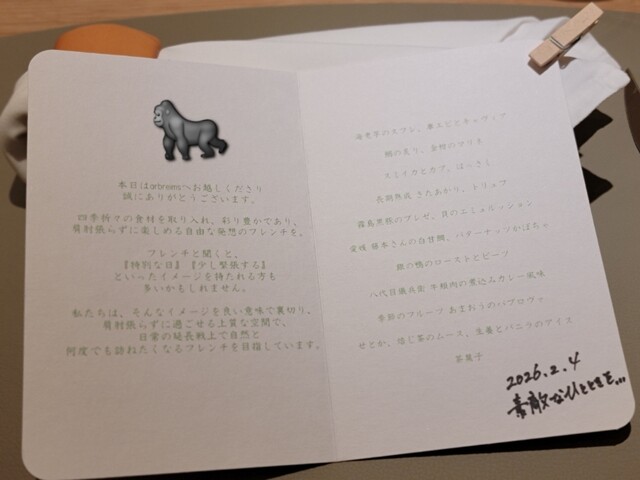 本日はarbremsへお越しくださり
誠にありがとうございます。
四季折々の食材を取り入れ、彩り豊かであり、
肩肘張らずに楽しめる自由な発想のフレンチを。
フレンチと聞くと、
『特別な日』『少し緊張する』
といったイメージを持たれる方も
多いかもしれません。
私たちは、そんなイメージを良い意味で裏切り、
肩肘張らずに過ごせる上質な空間で、
日常の延長戦上で自然と
何度でも訪ねたくなるフレンチを目指しています。
海老芋のスフレ、車エビとキャヴィア
鰤の炙り、金柑のマリネ
スミイカとカブ、ばーさし
長期熟成 きたあかり、トリュフ
霧島黒豚のブレゼ、貝のエミュルッション
愛媛 藤本さんの白甘鯛、バターナッツかぼちゃ
銀の鴨のローストとビーツ
八代目儀兵衛 牛頬肉の煮込みカレー風味
季節のフルーツ あまおうのパブロヴァ
せとか、焙じ茶のムース、生姜とバニラのアイス
茶菓子
2026.2.4
素敵なひとときを...